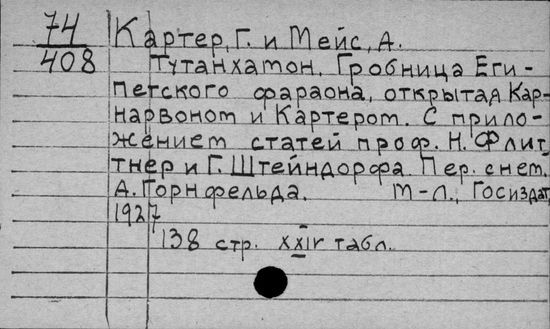 74
408
Картер, Г. и Мейс, А.
Тутанхамон. Гробница Еги-
петского фараона, открытая Кар-
нарвоном и Картером. С прило-
жением статей проф. Н. Флит-
тнер и Г. Штейндорфа. Пер. с нем.
А. Горнфельда. М-Л., Госиздат,
1927
138 стр. XXIV табл.